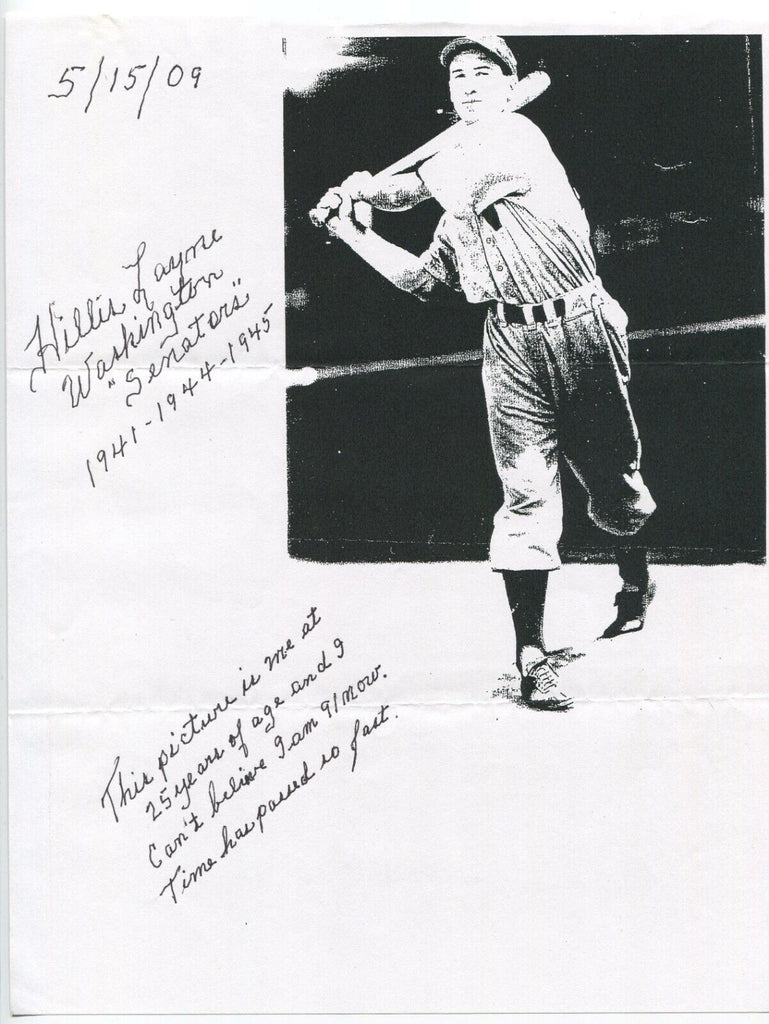 5/15/09
Hillis Layne
Washington
"Senators"
1941-1944-1945
This picture is me at
25 years of age and I
can't believe I am 91 now.
Time has passed so fast.